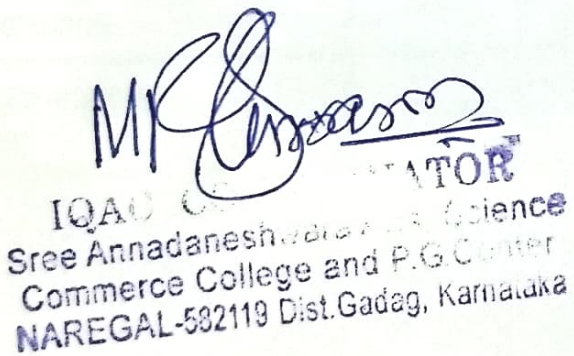 IQAC
Sree Annadaneshwara Science
Commerce College and P.G.Center
NAREGAL-582119 Dist.Gadag, Karnataka